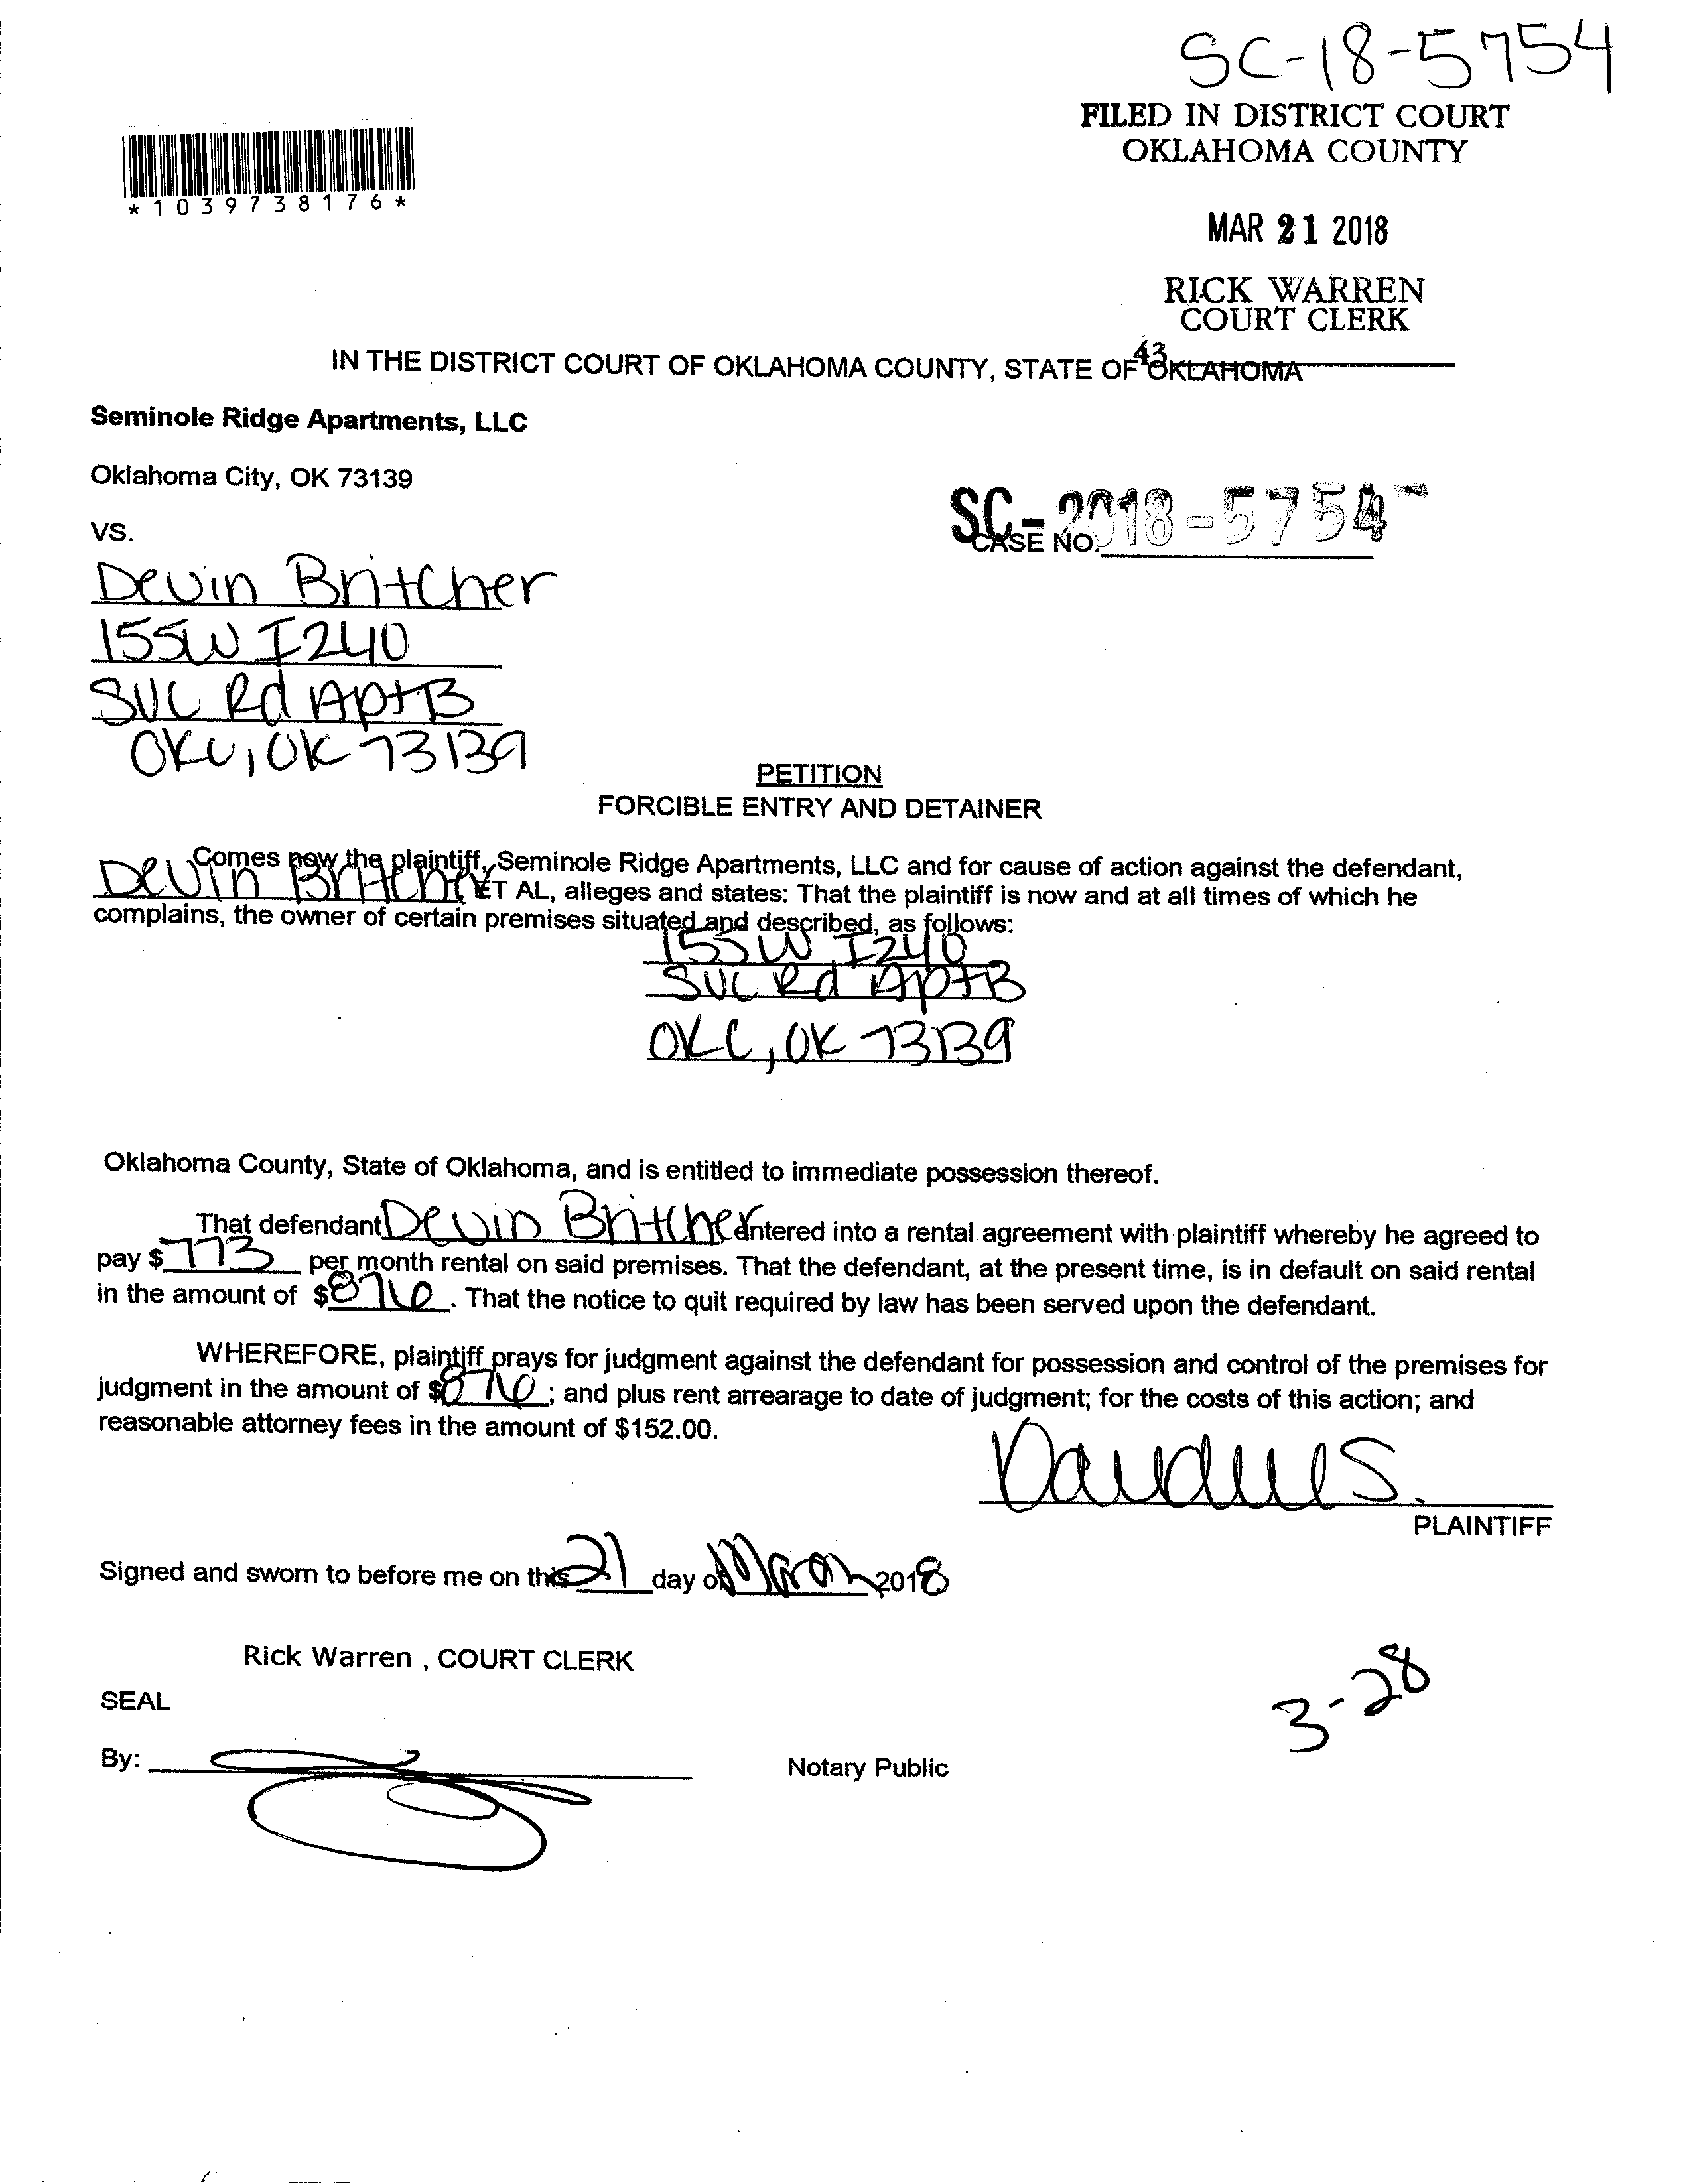 SC-18-5754
FILED IN DISTRICT COURT
OKLAHOMA COUNTY
*1039738176*
MAR 21 2018
RICK WARREN
COURT CLERK
43
IN THE DISTRICT COURT OF OKLAHOMA COUNTY, STATE OF OKLAHOMA
Seminole Ridge Apartments, LLC
Oklahoma City, OK 73139
SC-2018-5754
CASE NO.
VS.
Devin Britcher
155W I240
SVC Rd Apt B
OKC, OK 73139
PETITION
FORCIBLE ENTRY AND DETAINER
Comes now the plaintiff, Seminole Ridge Apartments, LLC and for cause of action against the defendant,
Devin Britcher ET AL, alleges and states: That the plaintiff is now and at all times of which he
complains, the owner of certain premises situated and described, as follows:
155W I240
SVC Rd Apt B
OKC, OK 73139
Oklahoma County, State of Oklahoma, and is entitled to immediate possession thereof.
That defendant Devin Britcher entered into a rental agreement with plaintiff whereby he agreed to
pay $ 773 per month rental on said premises. That the defendant, at the present time, is in default on said rental
in the amount of $876. That the notice to quit required by law has been served upon the defendant.
WHEREFORE, plaintiff prays for judgment against the defendant for possession and control of the premises for
judgment in the amount of $876; and plus rent arrearage to date of judgment; for the costs of this action; and
reasonable attorney fees in the amount of $152.00.
PLAINTIFF
Signed and sworn to before me on this 21 day of March 2018
Rick Warren , COURT CLERK
3-28
SEAL
By:
Notary Public